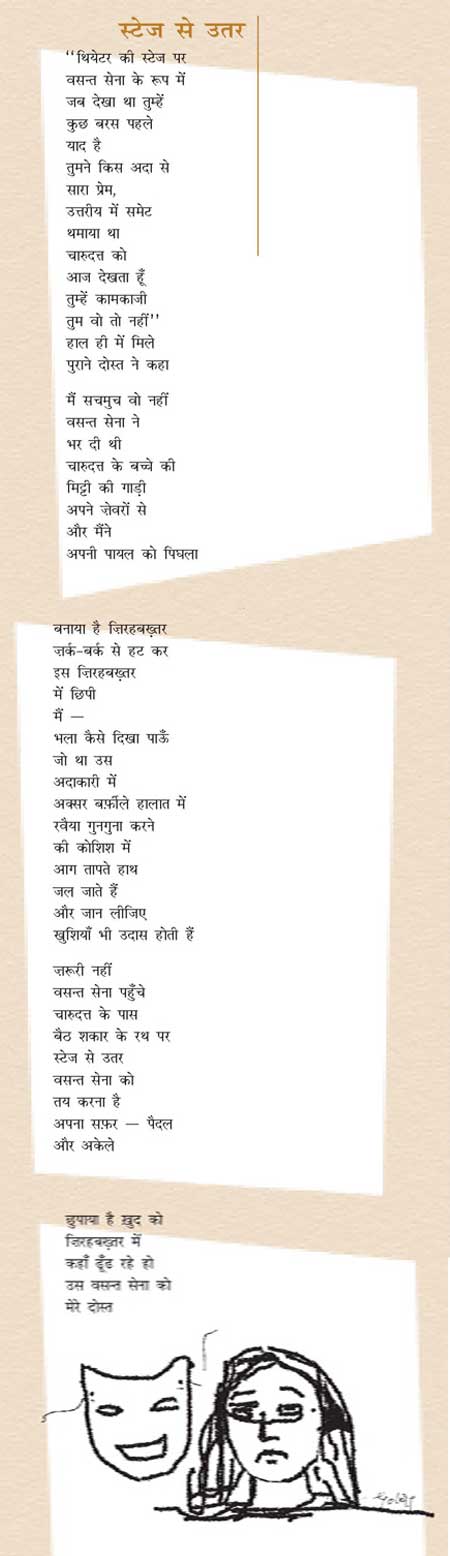 स्टेज से उतर
‘‘थियेटर की स्टेज पर
वसन्त सेना के रूप में
जब देखा था तुम्हें
कुछ बरस पहले
याद है
तुमने किस अदा से
सारा प्रेम,
उत्तरीय में समेट
थमाया था
चारुदत्त को
आज देखता हूँ
तुम्हें कामकाजी
तुम वो तो नहीं’’
हाल ही में मिले
पुराने दोस्त ने कहा
मैं सचमुच वो नहीं
वसन्त सेना ने
भर दी थी
चारुदत्त के बच्चे की
मिट्टी की गाड़ी
अपने ज़ेवरों से
और मैंने
अपनी पायल को पिघला
बनाया है ज़िरहबख़्तर
ज़र्क-बर्क से हट कर
इस ज़िरहबख़्तर
में छिपी
मैं —
भला कैसे दिखा पाऊँ
जो था उस
अदाकारी में
अक्सर बर्फ़ीले हालात में
रवैया गुनगुना करने
की कोशिश में
आग तापते हाथ
जल जाते हैं
और जान लीजिए
खुशियाँ भी उदास होती हैं
ज़रूरी नहीं
वसन्त सेना पहुँचे
चारुदत्त के पास
बैठ शकार के रथ पर
स्टेज से उतर
वसन्त सेना को
तय करना है
अपना सफ़र — पैदल
और अकेले
छुपाया है ख़ुद को
ज़िरहबख़्तर में
कहाँ ढूँढ रहे हो
उस वसन्त सेना को
मेरे दोस्त